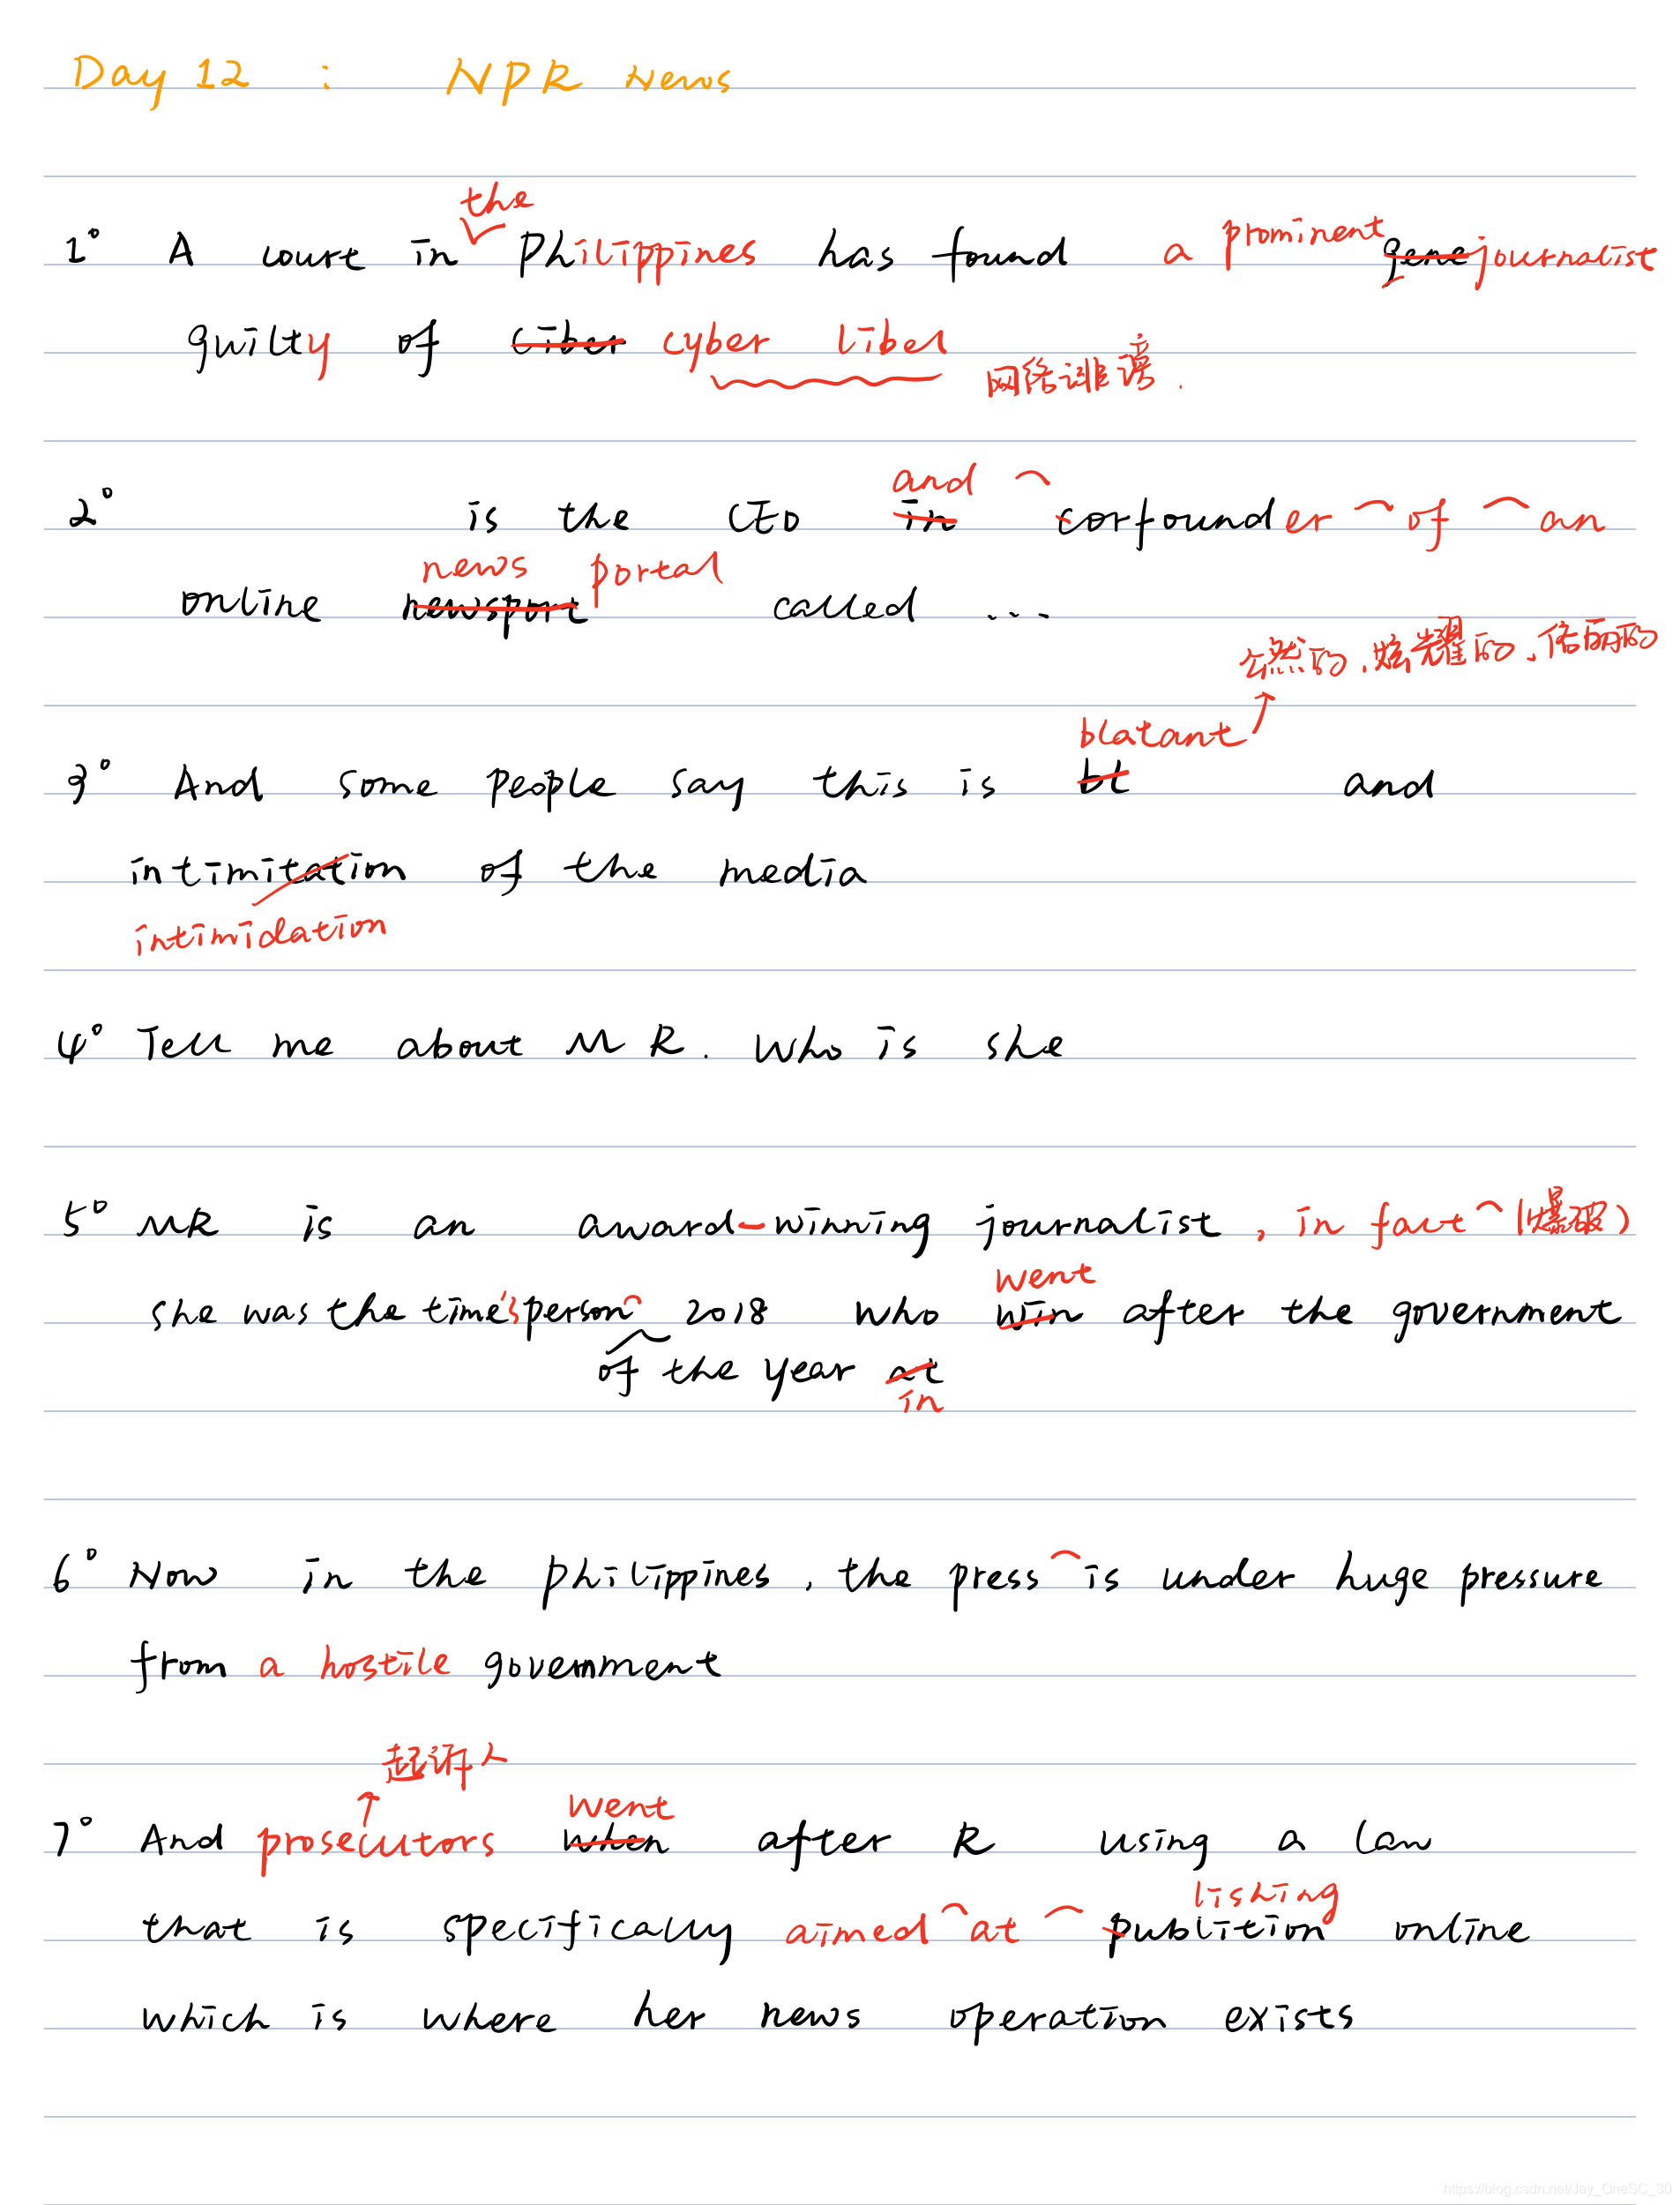 Day 12 : NPR News
the
1° A court in Philippines has found a prominent gene journalist
guilty of ciber cyber libel 网络诽谤.
and
2° is the CEO in corfounder of an
news portal
online newsport called ...
公然的、炫耀的、俗丽的
blatant
3° And some people say this is bt and
intimitation of the media
intimidation
4° Tell me about M R. Who is she
5° MR is an award-winning journalist, in fact (爆破)
went
she was the time's person 2018 who win after the government
of the year at
in
6° Now in the Philippines, the press is under huge pressure
from a hostile government
起诉人
went
7° And prosecutors when after R using a law
lishing
that is specifically aimed at publition online
which is where her news operation exists
https://blog.csdn.net/Jay_OneSC_30